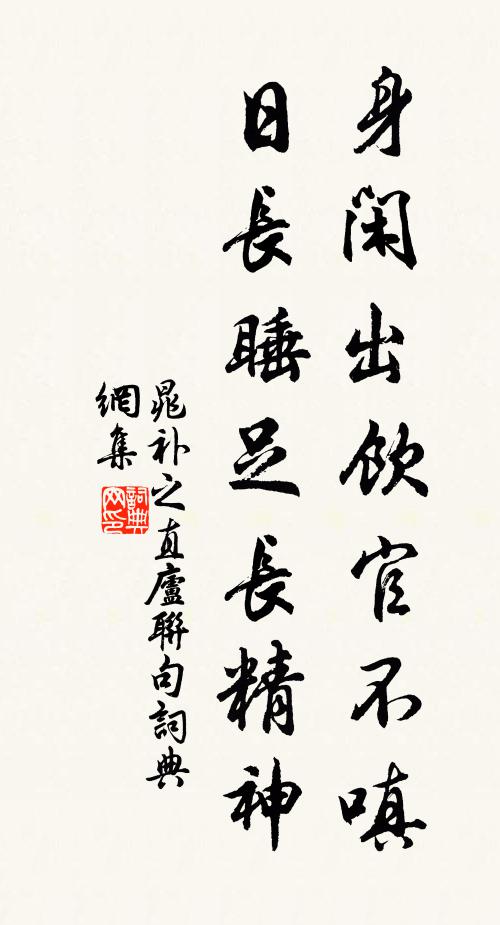 身閑出飲官不嗔
日長睡足長精神
晁补之直廬聯句詞典
網集
詞典
网印